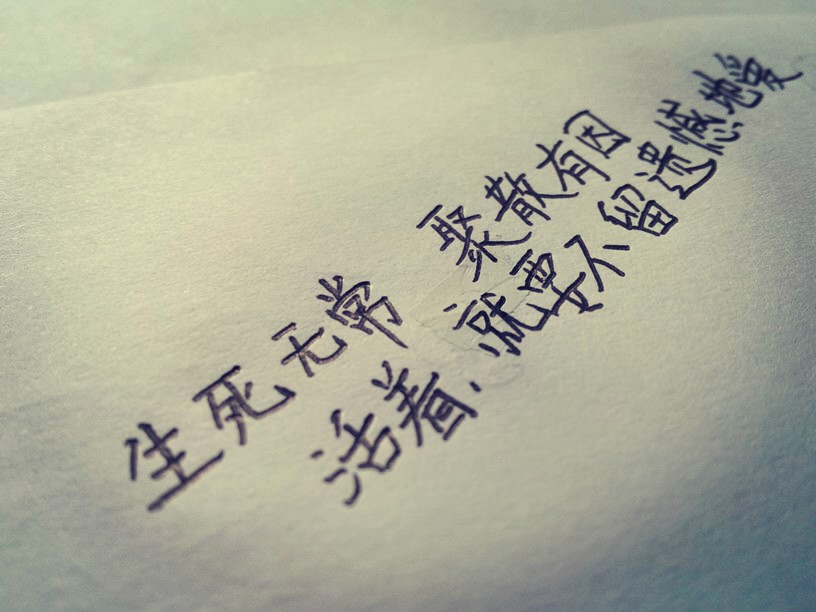 生死无常 聚散有因
活着，就要不留遗憾地爱